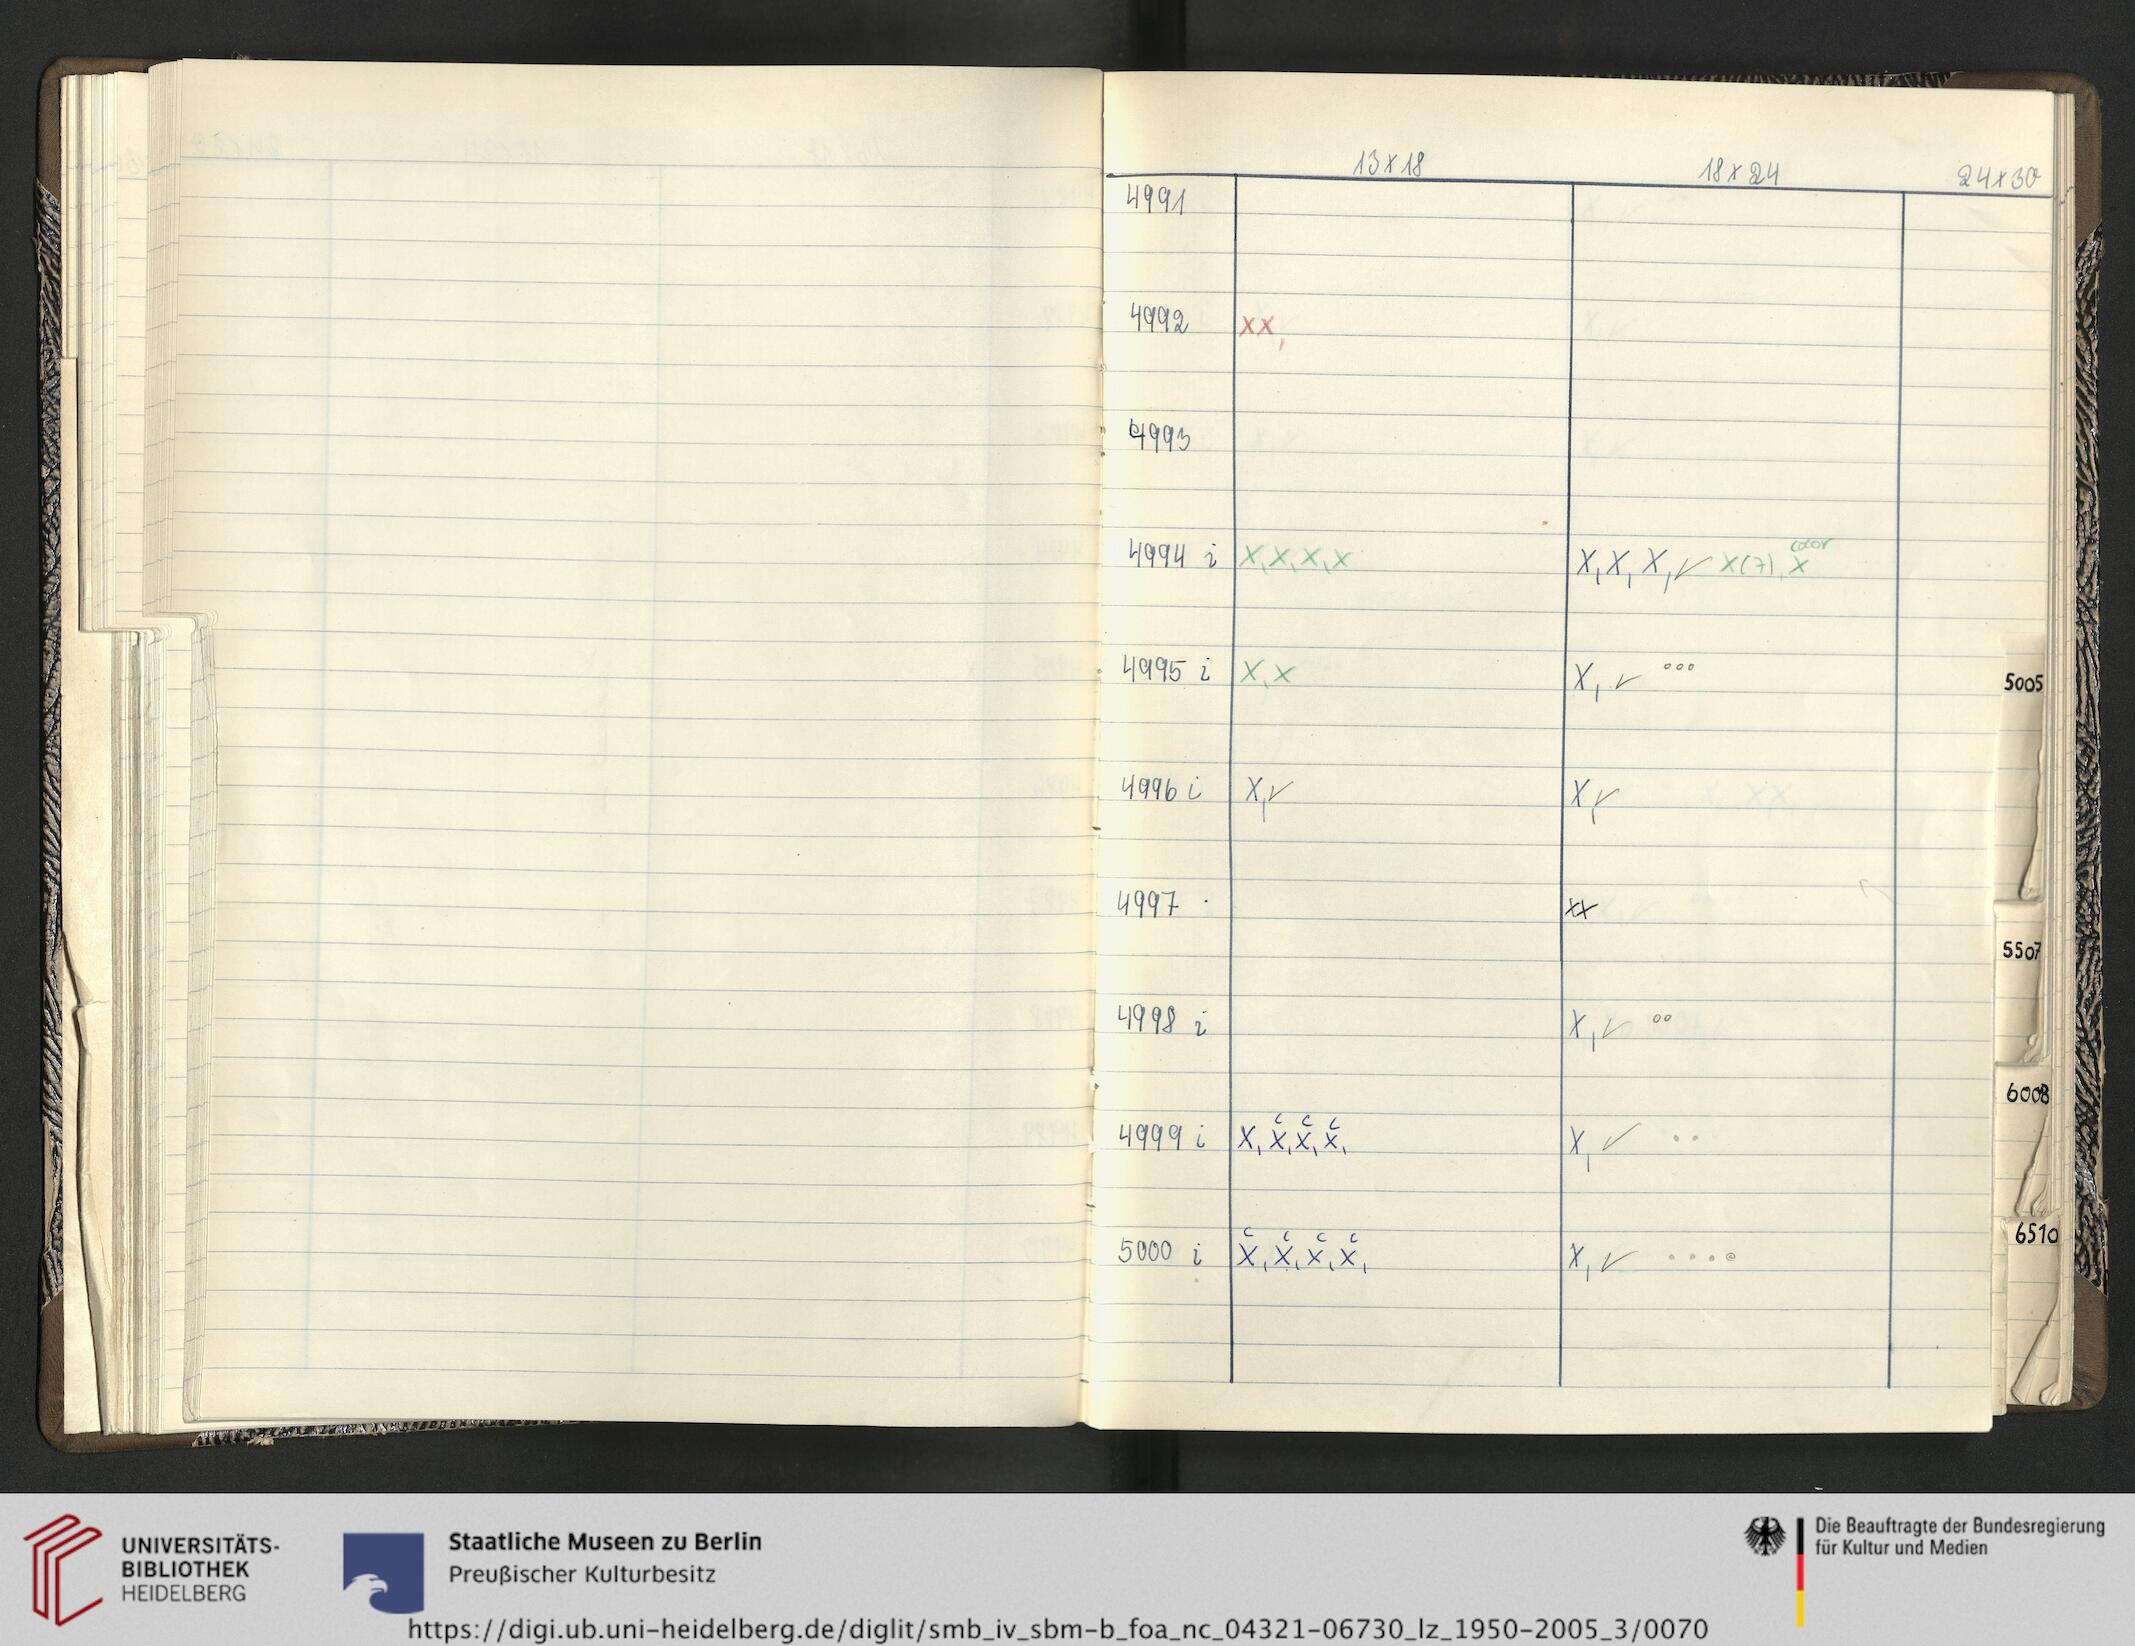 13x18 18x24 24x30
4991
4992 xx,
4993
4994 i X, X, X, X X, X, X, ✓ X(7), X color
4995 i X, X X, ✓ °°°
4996 i X, ✓ X, ✓
4997 · xx
4998 i X, ✓ °°
4999 i X, X, X, X, c c c X, ✓ · ·
5000 i X, X, X, X, c c c c X, ✓ · · · °
5005
5507
6008
6510
UNIVERSITÄTS-
BIBLIOTHEK
HEIDELBERG
Staatliche Museen zu Berlin
Preußischer Kulturbesitz
Die Beauftragte der Bundesregierung
für Kultur und Medien
https://digi.ub.uni-heidelberg.de/diglit/smb_iv_sbm-b_foa_nc_04321-06730_lz_1950-2005_3/0070